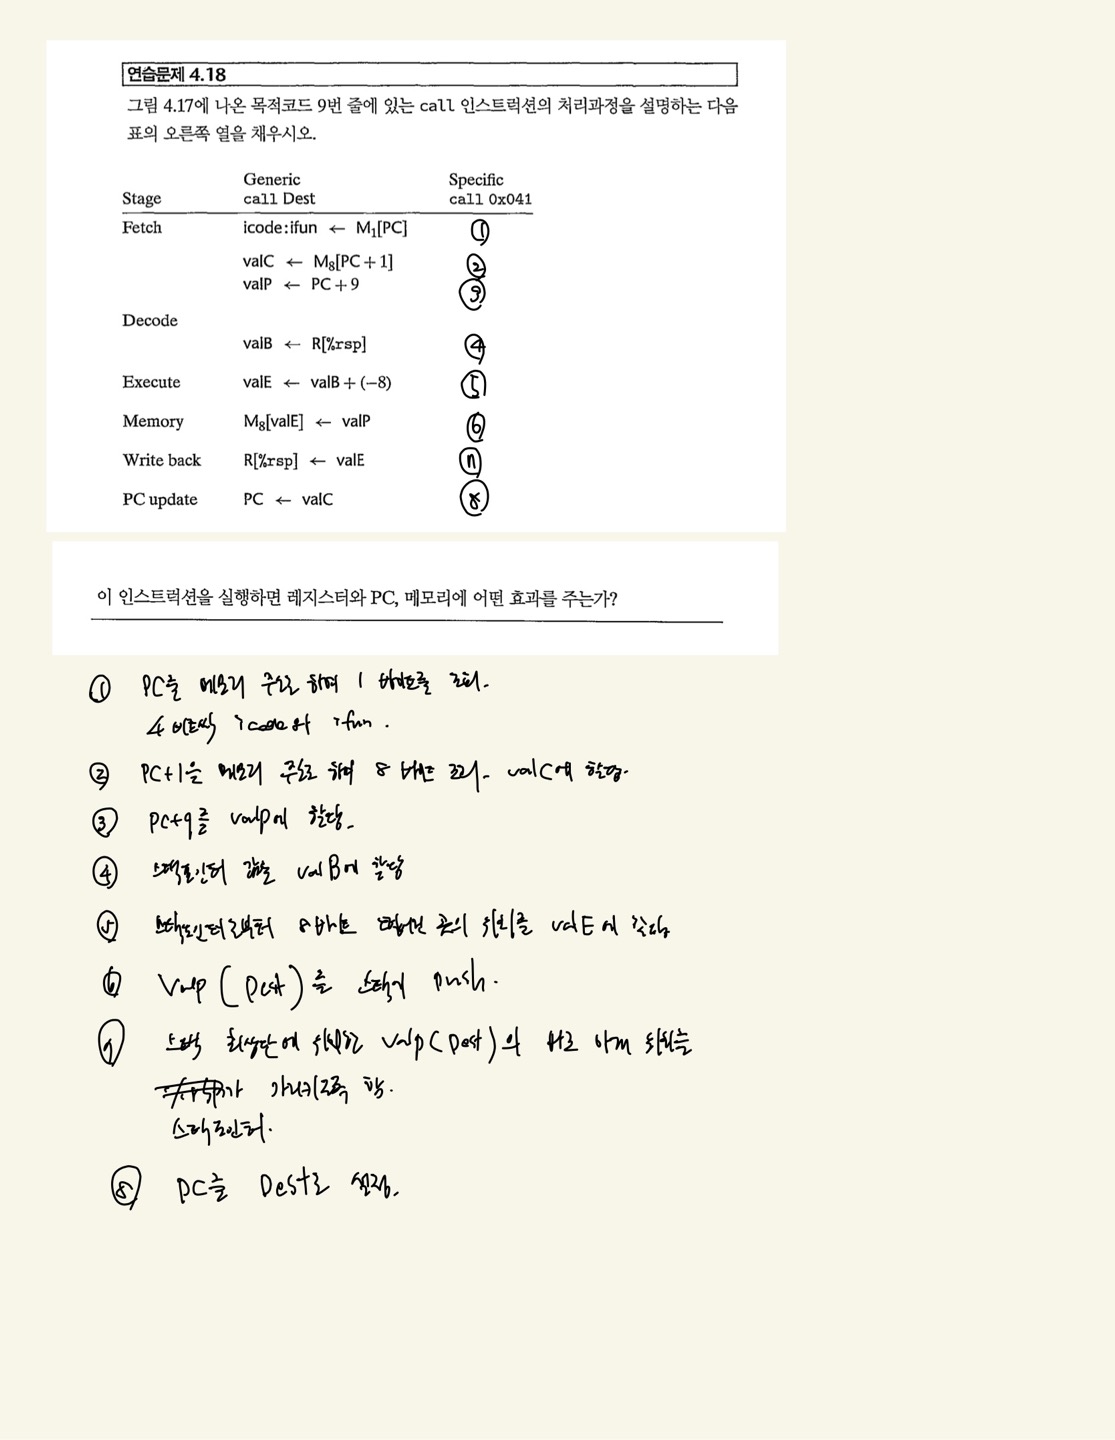 연습문제 4.18
그림 4.17에 나온 목적코드 9번 줄에 있는 call 인스트럭션의 처리과정을 설명하는 다음
표의 오른쪽 열을 채우시오.
Generic Specific
Stage call Dest call 0x041
Fetch icode:ifun ← M₁[PC] ①
valC ← M₈[PC+1] ②
valP ← PC+9 ③
Decode
valB ← R[%rsp] ④
Execute valE ← valB+(−8) ⑤
Memory M₈[valE] ← valP ⑥
Write back R[%rsp] ← valE ⑦
PC update PC ← valC ⑧
이 인스트럭션을 실행하면 레지스터와 PC, 메모리에 어떤 효과를 주는가?
① PC를 메모리 주소로 하여 1 바이트를 조회.
4 비트씩 icode와 ifun.
② PC+1을 메모리 주소로 하여 8 바이트 조회. valC에 할당.
③ PC+9를 valp에 할당.
④ 스택포인터 값을 valB에 할당
⑤ 스택포인터로부터 8바이트 떨어진 곳의 위치를 valE에 할당
⑥ Valp (Dest)를 스택에 push.
⑦ 스택 최상단에 위치한 valp(Dest)의 바로 아래 위치를
가 가리키도록 함.
스택포인터.
⑧ PC를 Dest로 설정.